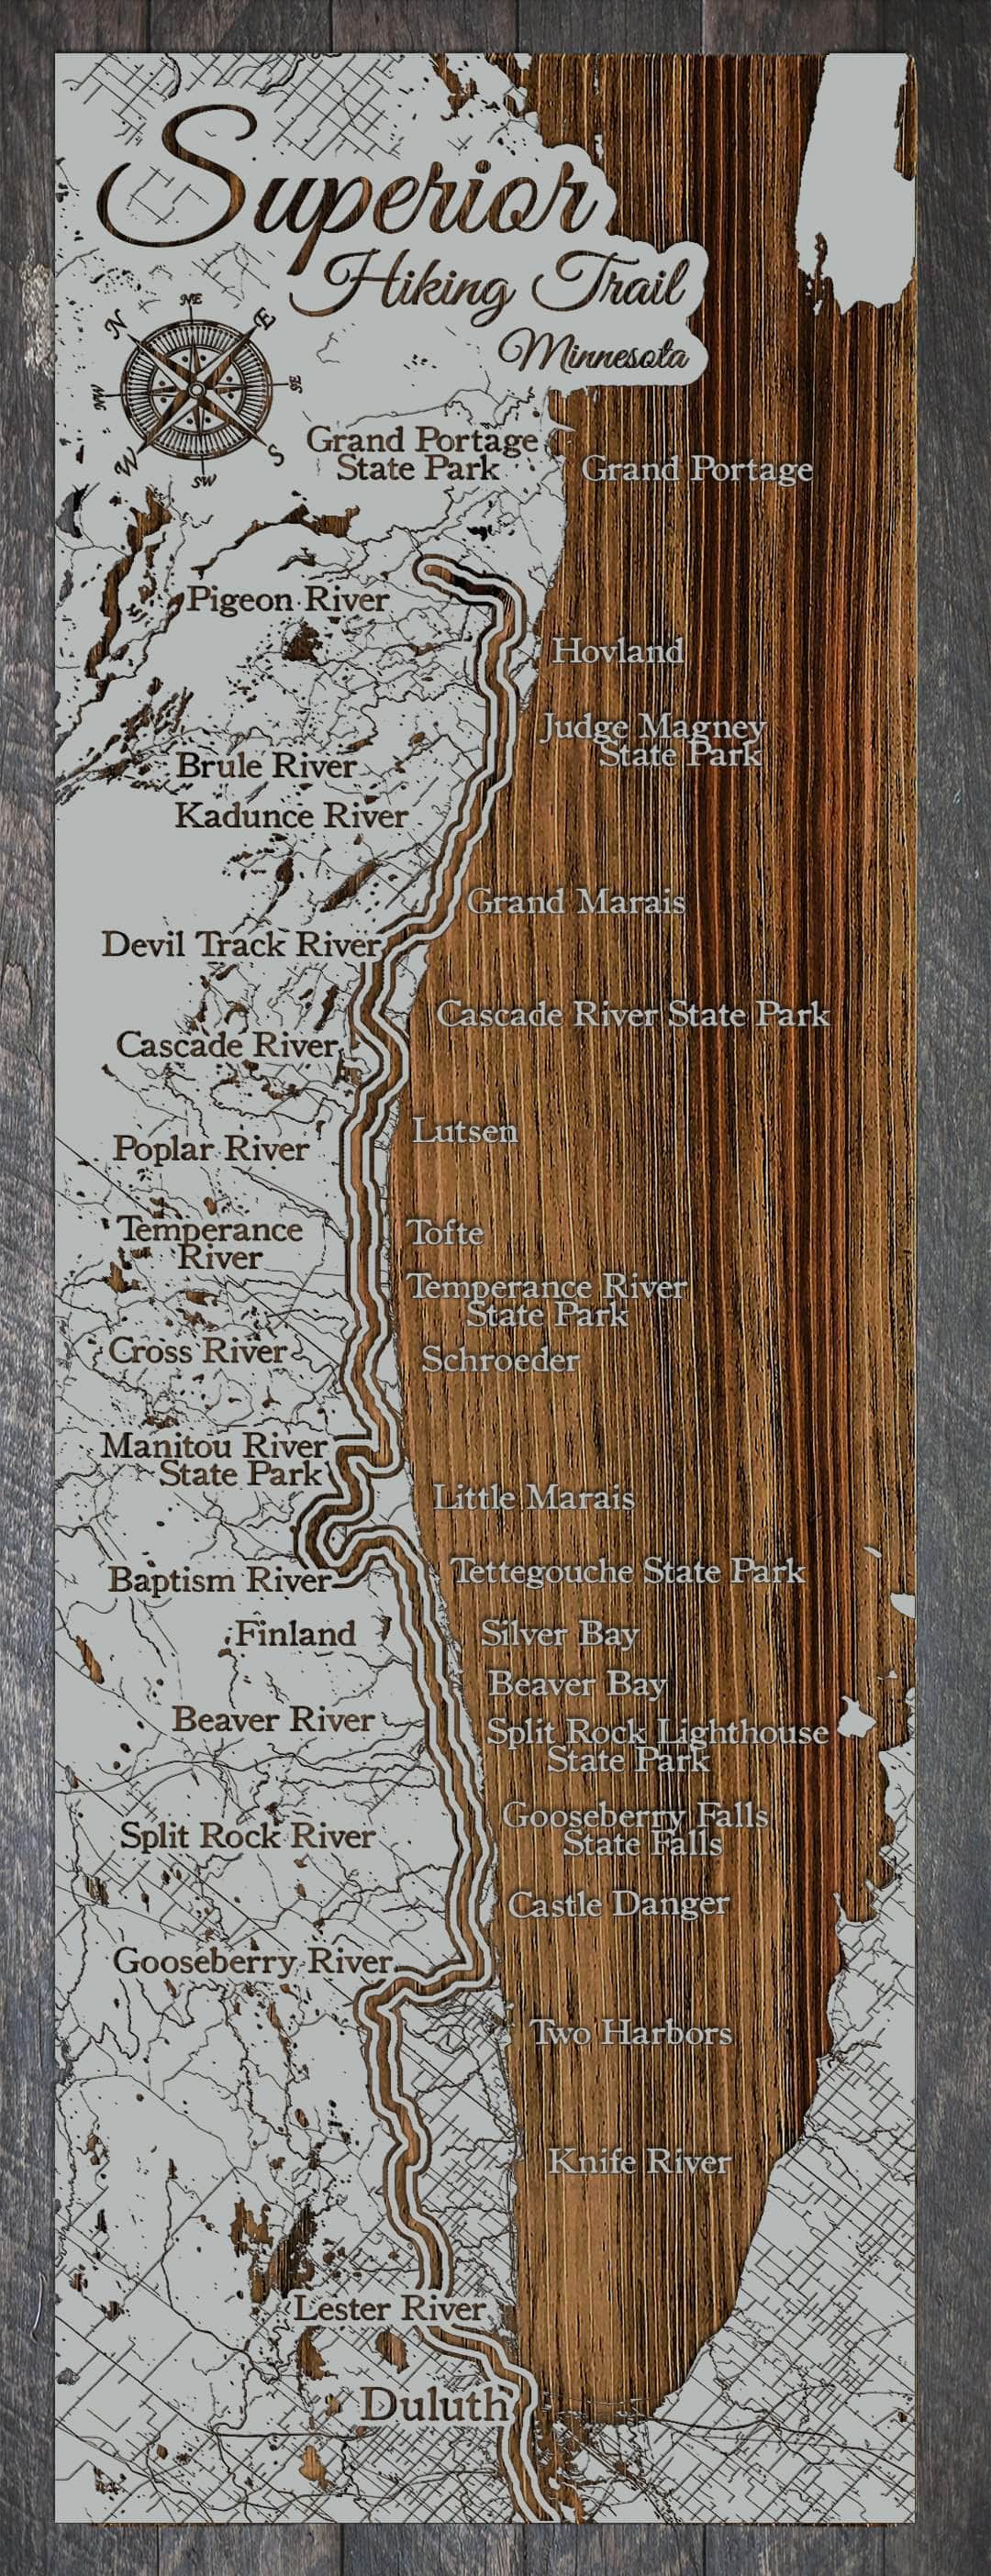 Superior
Hiking Trail
Minnesota
NE
N
E
NW
SE
W
S
SW
Grand Portage
State Park
Grand Portage
Pigeon River
Hovland
Judge Magney
State Park
Brule River
Kadunce River
Grand Marais
Devil Track River
Cascade River State Park
Cascade River
Lutsen
Poplar River
Temperance
River
Tofte
Temperance River
State Park
Cross River
Schroeder
Manitou River
State Park
Little Marais
Tettegouche State Park
Baptism River
Finland
Silver Bay
Beaver Bay
Beaver River
Split Rock Lighthouse
State Park
Gooseberry Falls
State Falls
Split Rock River
Castle Danger
Gooseberry River
Two Harbors
Knife River
Lester River
Duluth